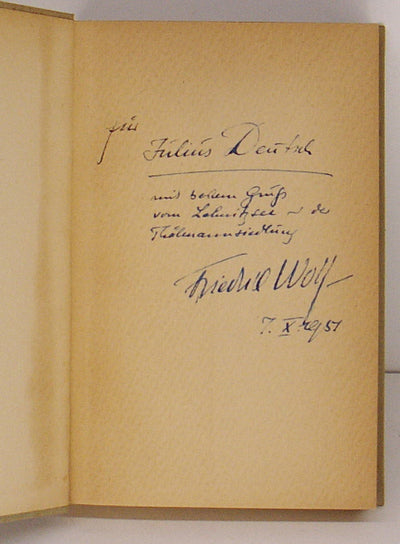 für
Julius Deutsch
mit hohem Gruß
vom Lehnitzsee u der
Thälmannsiedlung
Friedrich Wolf
7. X. 1951